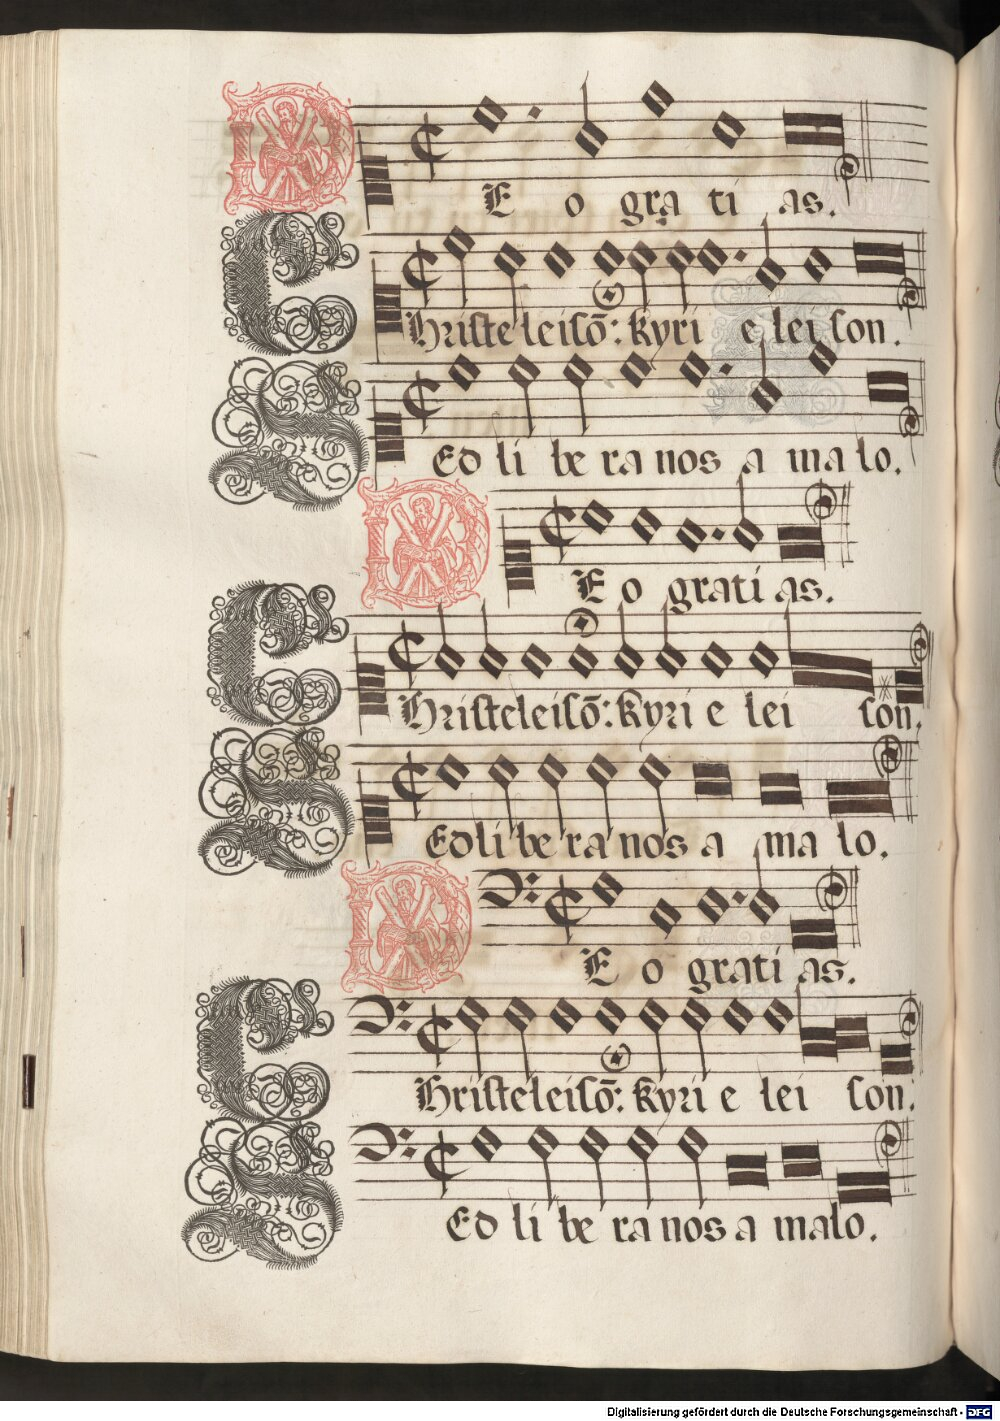 DEo grati as.
Christe leisō: kyri e lei son.
Sed li be ra nos a ma lo.
DEo grati as.
Christeleisō: kyri e lei son.
Sed li be ra nos a ma lo.
DEo grati as.
Christe leisō: kyri e lei son.
Sed li be ra nos a malo.
Digitalisierung gefördert durch die Deutsche Forschungsgemeinschaft - DFG